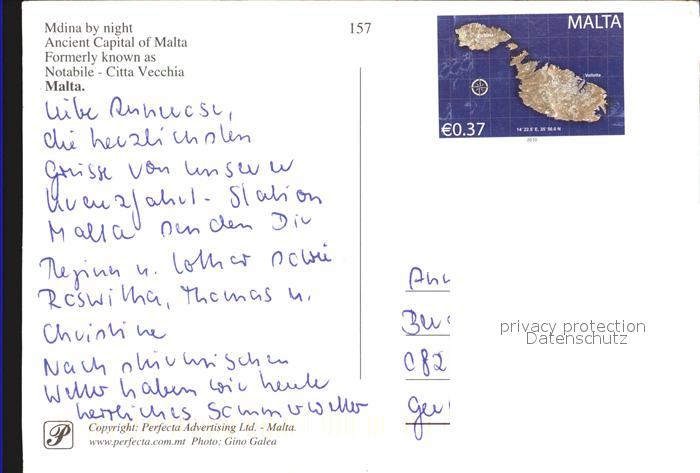 Mdina by night
Ancient Capital of Malta
Formerly known as
Notabile - Citta Vecchia
Malta.
157
MALTA
Valletta
€0.37
14˚ 22.5' E, 35˚ 56.0 N
2010
Liebe Annerose,
die herzlichsten
Grüsse von unserer
Kreuzfahrt-Station
Malta senden Dir
Regina u. Lothar sowie
Roswitha, Thomas u.
Christine
Nach stürmischen
Wetter haben wir heute
herrliches Sommerwetter
privacy protection
Datenschutz
Copyright: Perfecta Advertising Ltd. - Malta.
www.perfecta.com.mt Photo: Gino Galea